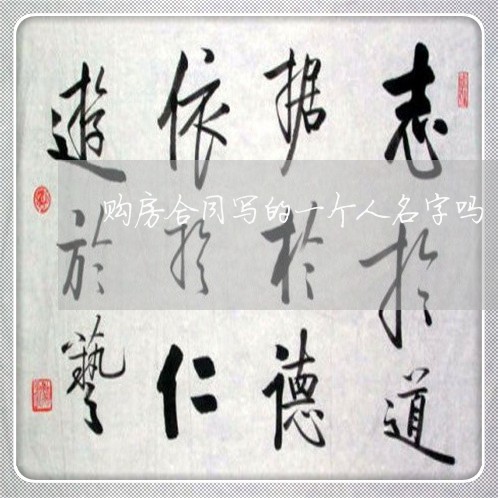 志於道
据於德
依於仁
遊於藝
购房合同写的一个人名字吗